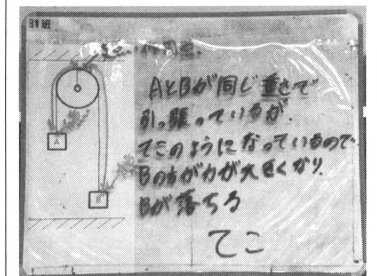 31班
AとBが同じ重さで
引っ張っているが、
てこのようになっているので
Bの方が力が大きくなり、
Bが落ちる
てこ
A
B